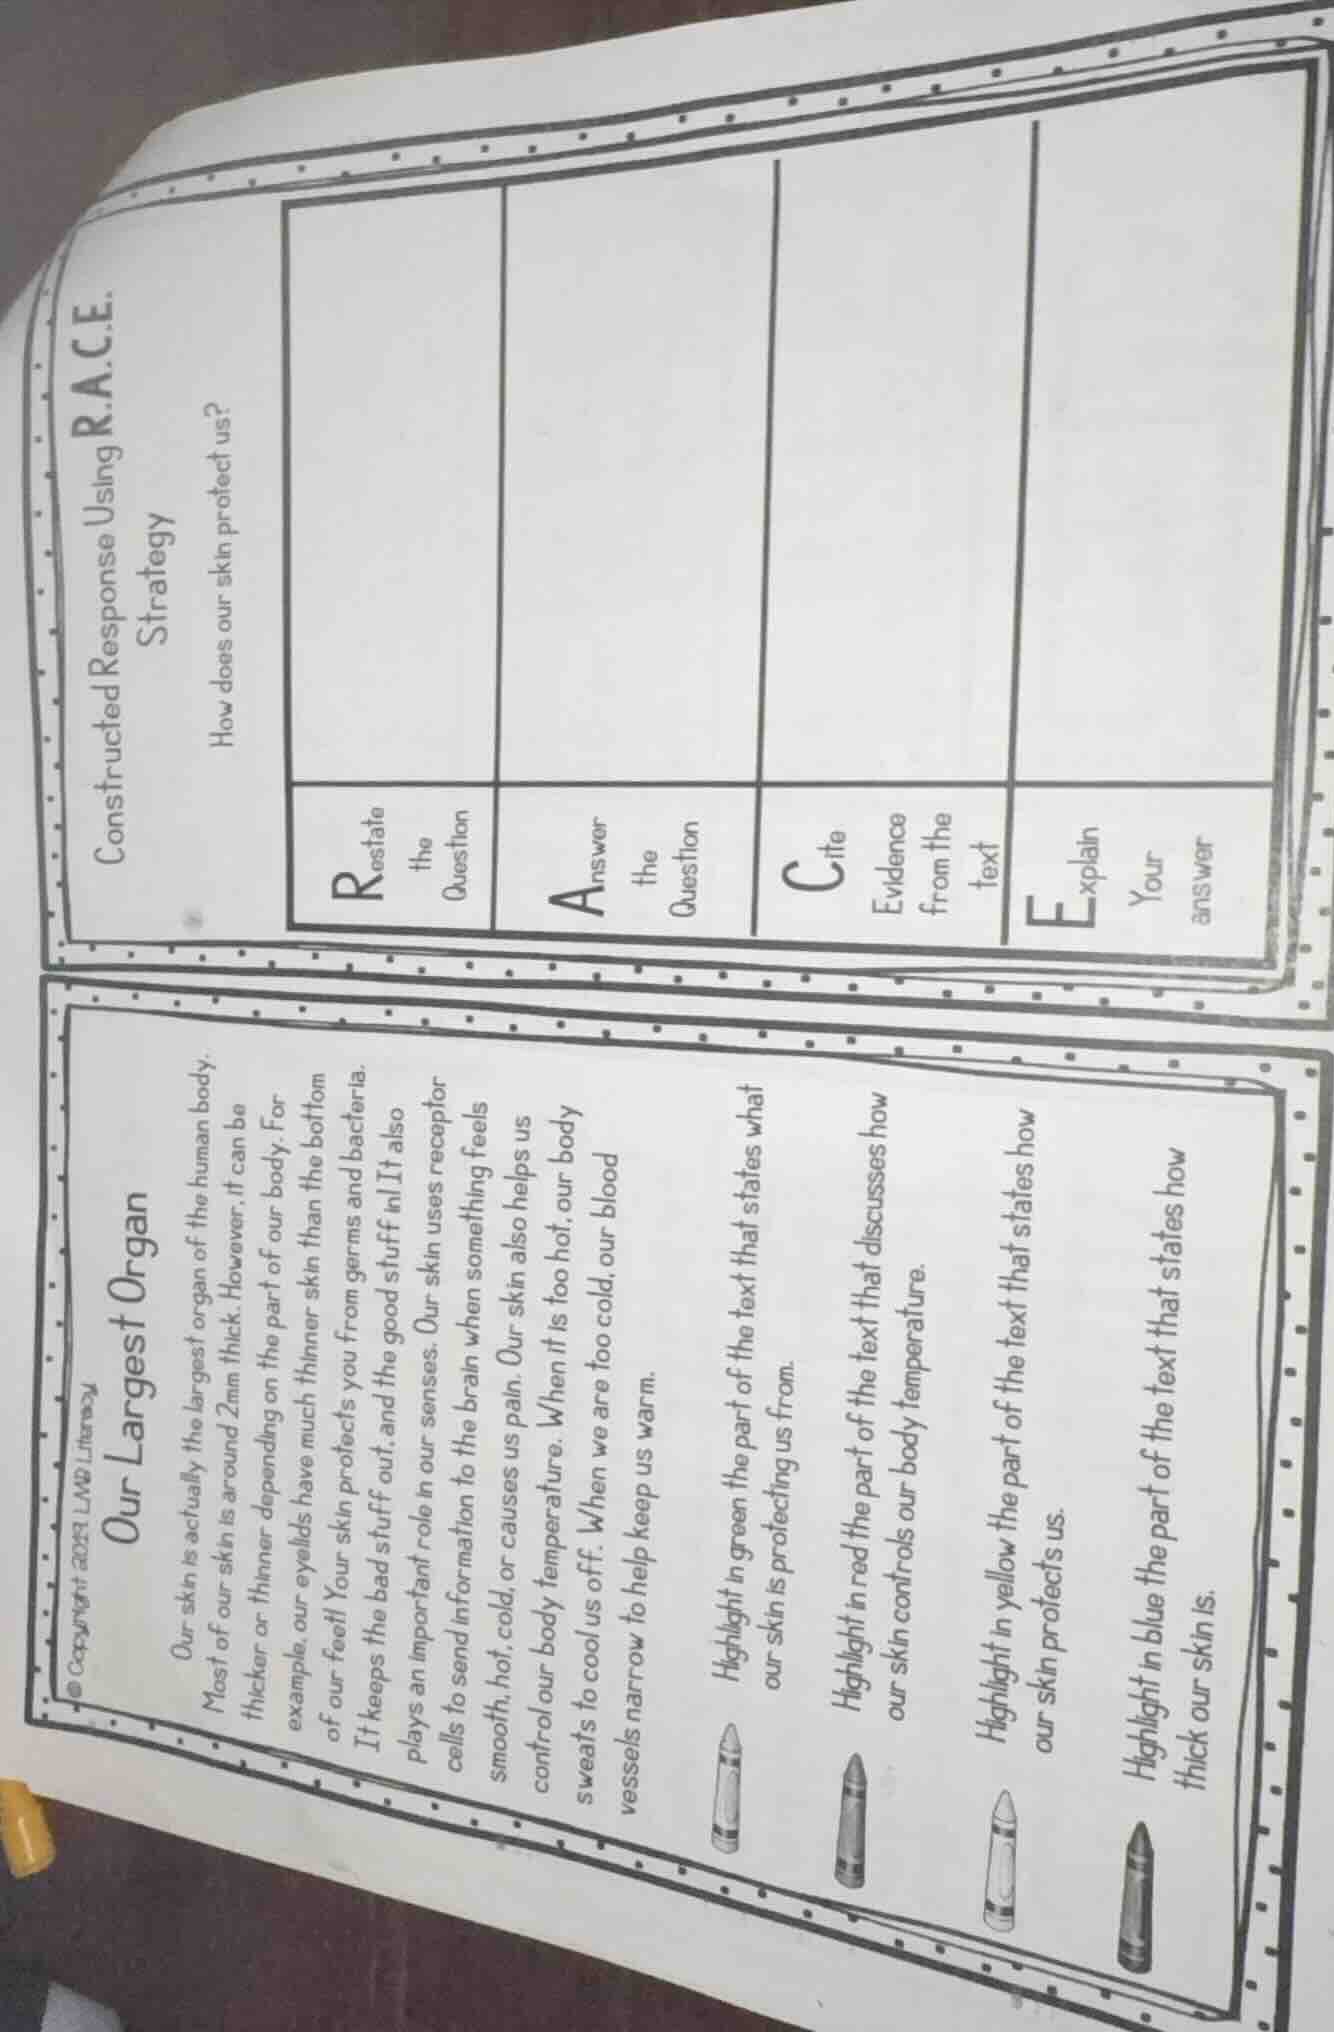 © Copyright 2019 LMB Literacy
Our Largest Organ
Our skin is actually the largest organ of the human body.
Most of our skin is around 2mm thick. However, it can be
thicker or thinner depending on the part of our body. For
example, our eyelids have much thinner skin than the bottom
of our feet! Your skin protects you from germs and bacteria.
It keeps the bad stuff out, and the good stuff in! It also
plays an important role in our senses. Our skin uses receptor
cells to send information to the brain when something feels
smooth, hot, cold, or causes us pain. Our skin also helps us
control our body temperature. When it is too hot, our body
sweats to cool us off. When we are too cold, our blood
vessels narrow to help keep us warm.
Highlight in green the part of the text that states what
our skin is protecting us from.
Highlight in red the part of the text that discusses how
our skin controls our body temperature.
Highlight in yellow the part of the text that states how
our skin protects us.
Highlight in blue the part of the text that states how
thick our skin is.
Constructed Response Using R.A.C.E.
Strategy
How does our skin protect us?
Restate
the
Question
Answer
the
Question
Cite
Evidence
from the
text
Explain
Your
answer